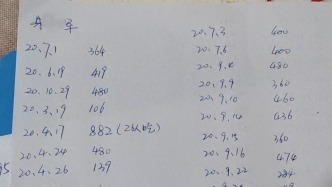 20.7.1 364
20.6.19 419
20.10.29 480
20.3.19 106
20.4.17 882
20.4.24 480
20.4.26 139
20.7.3 400
20.7.6 400
20.9.10 480
20.9.9 360
20.9.10 460
20.9.14 436
20.9.15 360
20.9.16 474
20.9.22
95